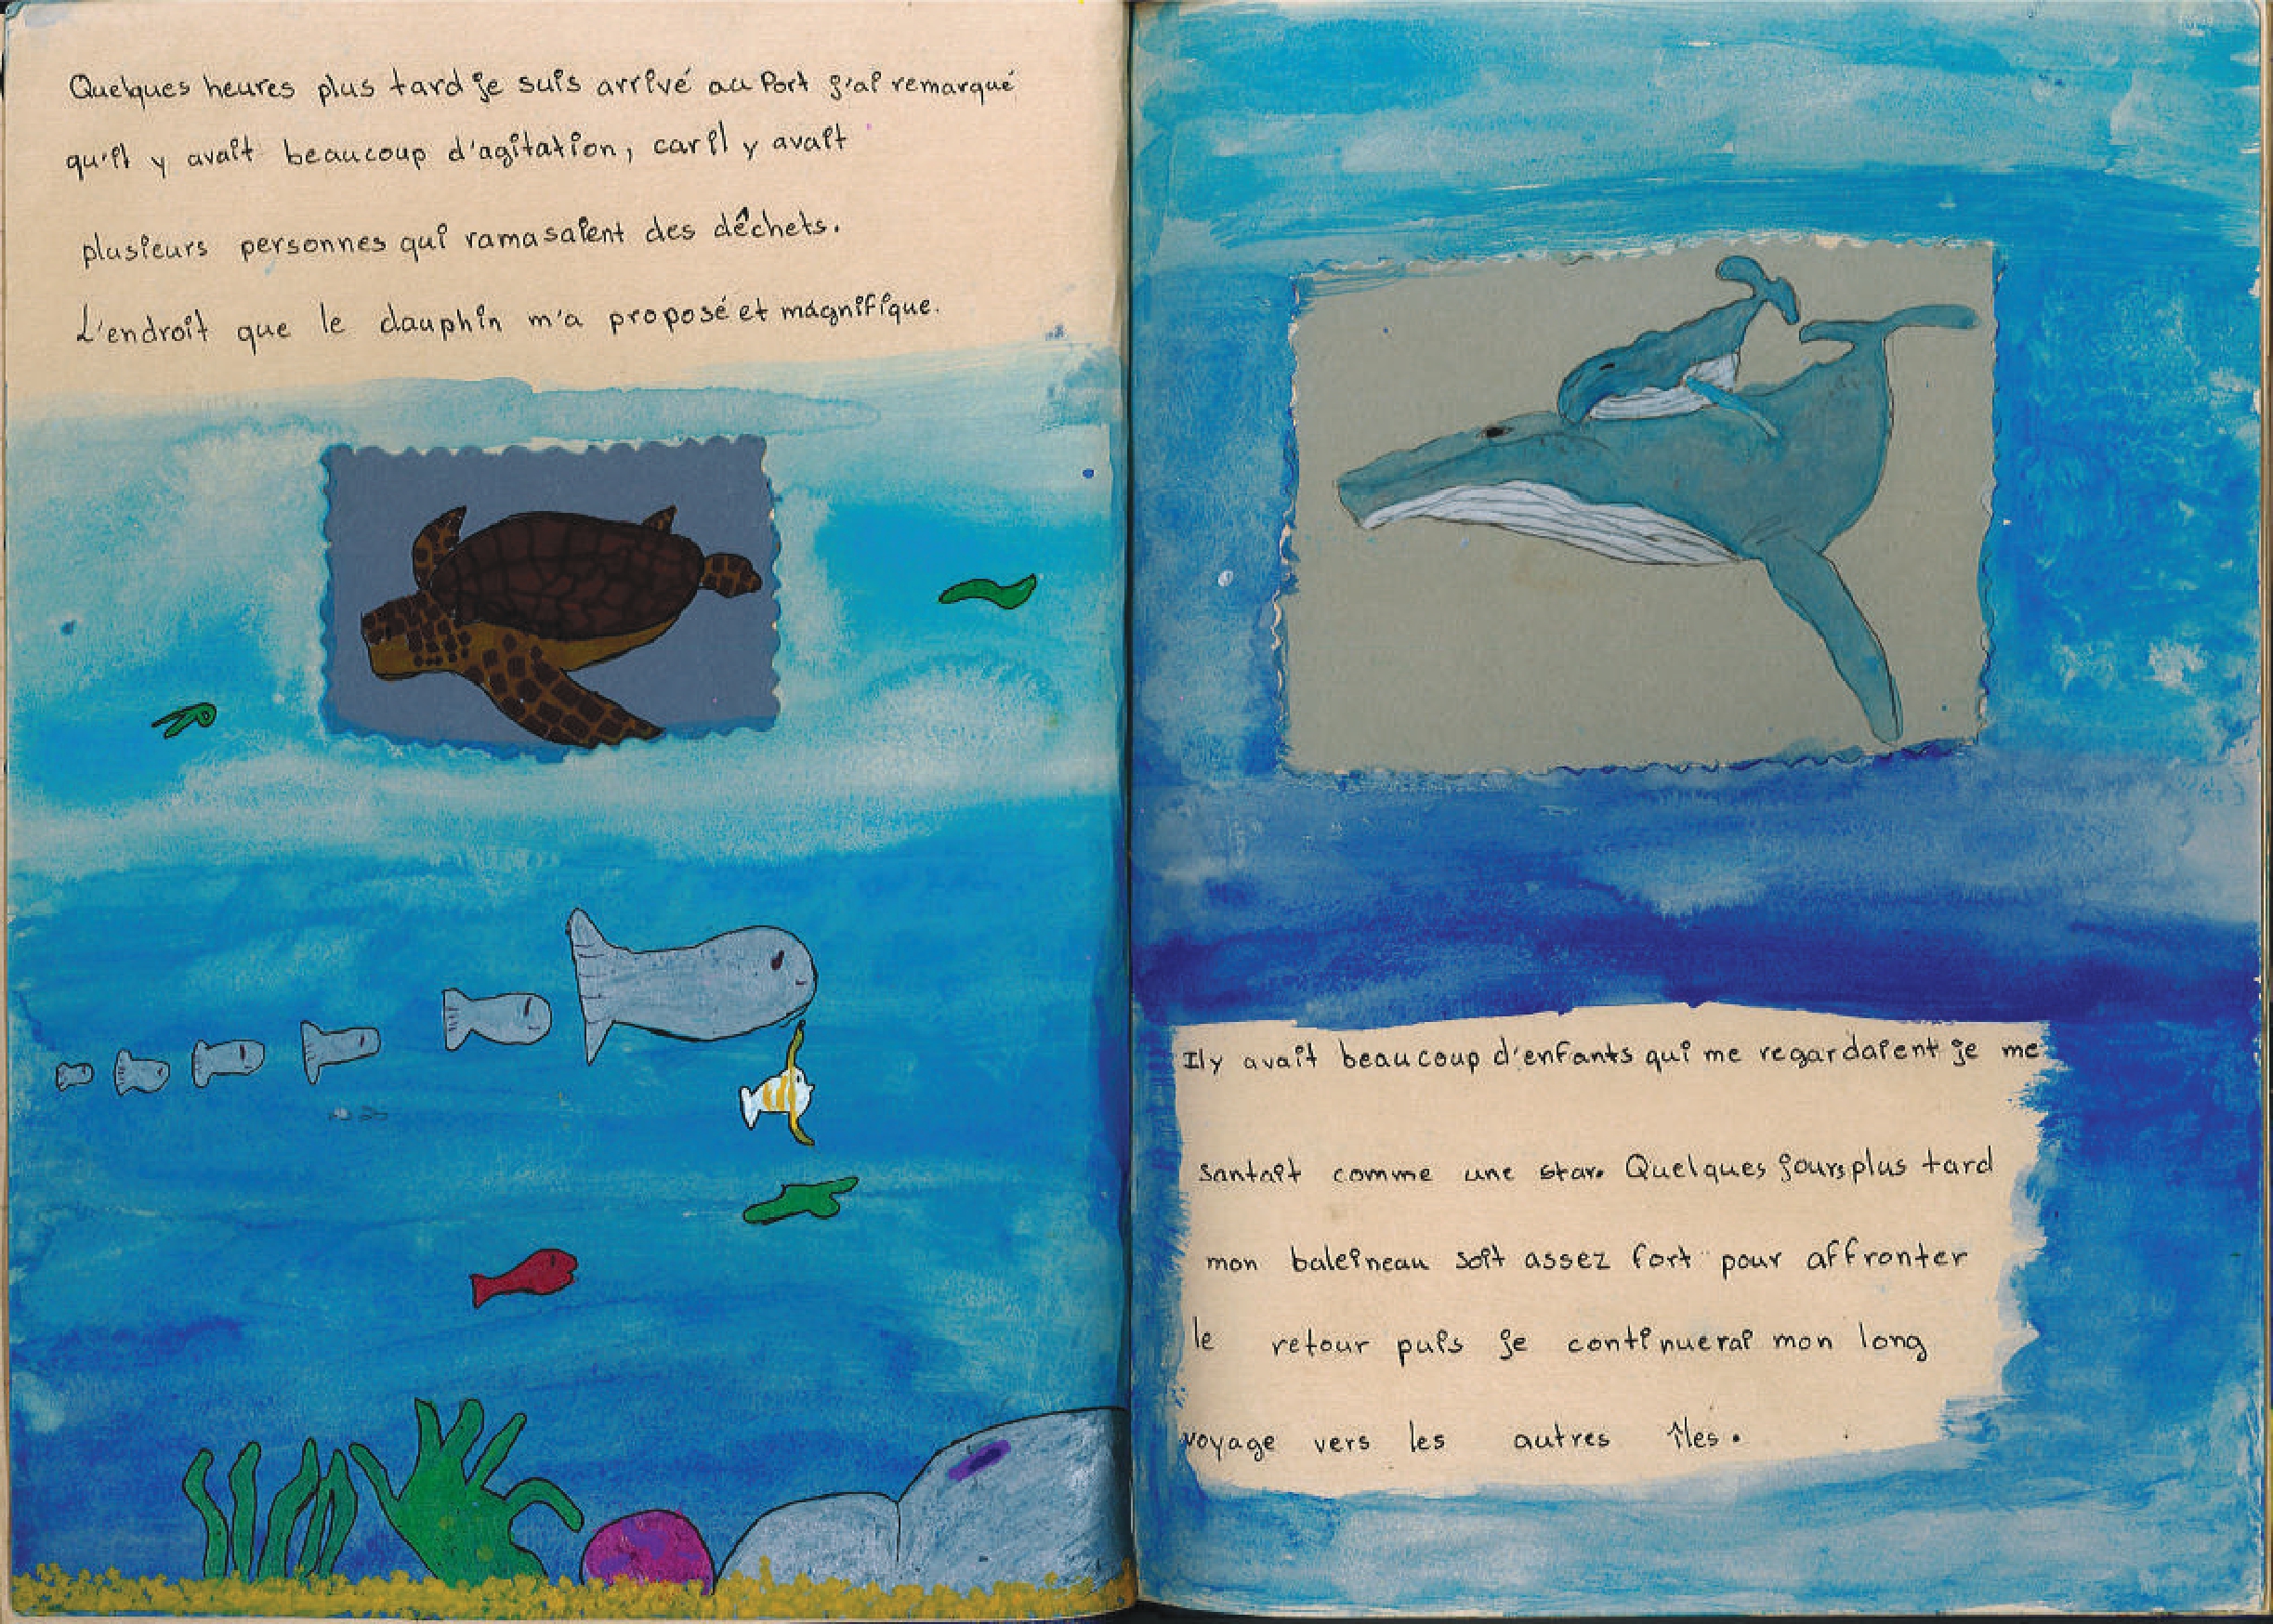 Quelques heures plus tard je suis arrivé au Port j'ai remarqué
qu'il y avait beaucoup d'agitation, car il y avait
plusieurs personnes qui ramasaient des dêchets.
L'endroit que le dauphin m'a proposé et magnifique.
Il y avait beaucoup d'enfants qui me regardaient je me
santait comme une star. Quelques jours plus tard
mon baleineau soit assez fort pour affronter
le retour puis je continuerai mon long
voyage vers les autres îles.